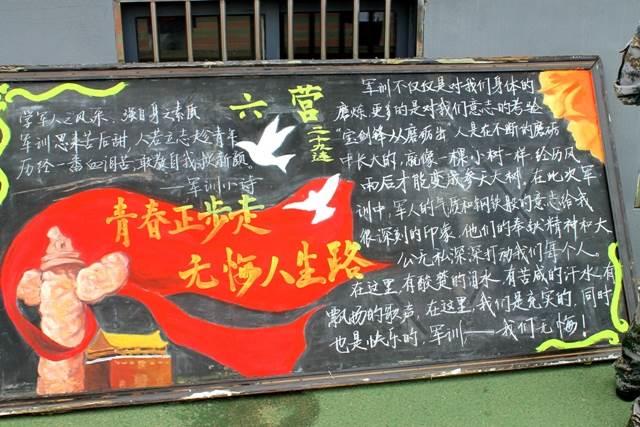 学军人之风采、强自身之素质
军训思来苦后甜，人若立志趁青年
历经一番血泪苦，敢教自我换新颜。
——军训小诗
六营
二十九连
青春正步走
无悔人生路
军训不仅仅是对我们身体的
磨炼，更多的是对我们意志的考验
"宝剑锋从磨砺出"，人是在不断的磨砺
中长大的，就像一棵小树一样，经历风
雨后才能变成参天大树，在此次军
训中，军人的气质和钢铁般的意志给我
很深刻的印象，他们的奉献精神和大
公无私深深打动我们每个人。
在这里，有酸楚的泪水，有苦咸的汗水，有
飘扬的歌声，在这里，我们是充实的，同时
也是快乐的，军训——我们无悔！